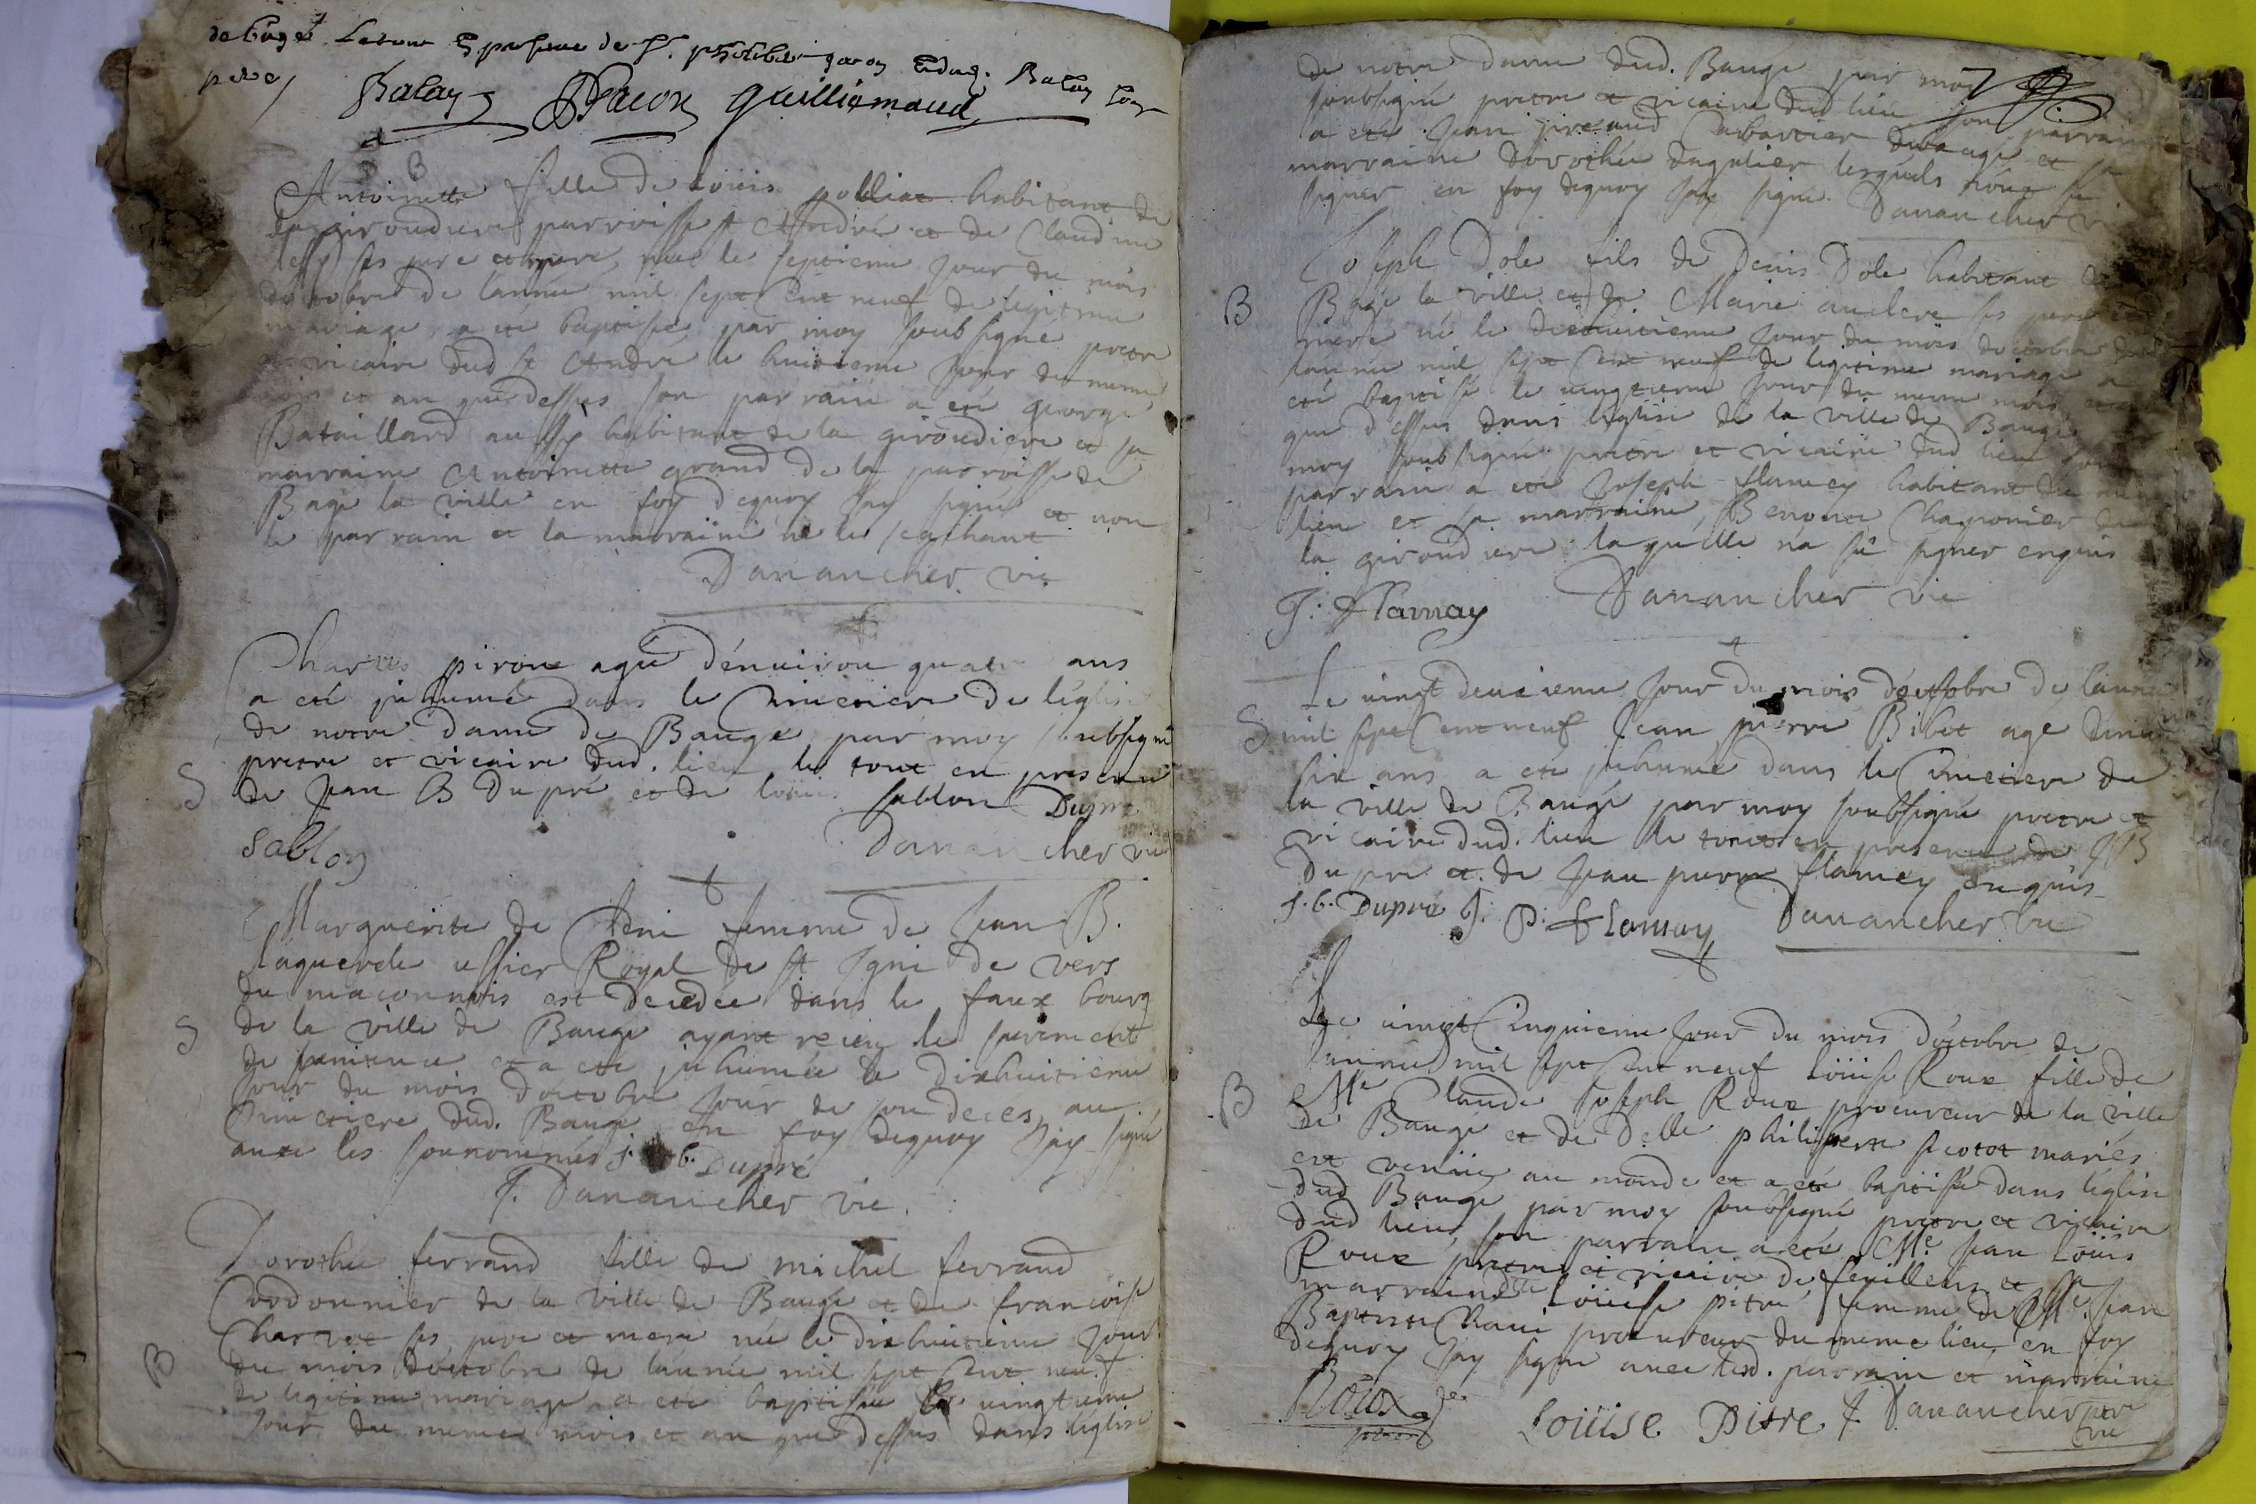 de Baugé Le tout En presence de
pere Balay Guilliemaud
B
Antoinette fille de Loüis polliat habitant de
la giroudiere parroisse st André et de Claudine
ses pere et mere, née le septieme jour du mois
d'octobre de l'année mil sept cent neuf de legitime
mariage a eté baptisée par moy soubsigné pretre
et vicaire dud st André le huitieme jour du meme
mois et an que dessus son parrain a eté george
Bataillard aussy habitant de la giroudiere et sa
marraine Antoinette grand de la parroisse de
Bagé la ville en foy dequoy jay signé et non
le parrain et la marraine ne le scachant
Danancher vic
Charles pirone agé d'énuiron quatre ans
a eté jnhumé dans le Cimetiere de l'église
de notre dame de Baugé par moy soubsigné
pretre et vicaire dud. lieu le tout en presence
S
de Jean B Dupré et de loüis sablon Dupré
Sablon
Danancher vic
Marguerite de Cleni femme de Jean B.
laguerde ussier Royal de st Igni de vers
du maconnois est decedée dans le faux bourg
S
de la ville de Baugé ayant receu le sacrement
de penitence et a eté jnhumée le dixhuitieme
jour du mois d'octobre jour de son decés au
Cimetiere dud. Baugé en foy dequoy jay signé
auec les sounommés j. b. Dupré
J. Danancher vic.
Dorothée ferrand fille de michel ferrand
Cordonnier de la ville de Baugé et de francoise
Charvet ses pere et mere née le dixhuitieme jour
B
du mois d'octobre de l'année mil sept cent neuf
de legitime mariage a eté baptisée le uingtieme
jour du meme mois et an que dessus dans l'église
de notre dame dud. Baugé par moy
soubsigné pretre et vicaire dud lieu son parrain
a eté Jean jireaud Cabartier de Baugé et sa
marraine dorothée dagalier lesquels n'ont sû
signer en foy dequoy jay signé. Danancher vi
Joseph Dole fils de Denis Dole habitant de
B
Bagé la ville et de Marie auclerc ses pere et
mere né le dixhuitieme jour du mois d'octobre de
l'année mil sept cent neuf de legitime mariage a
eté baptisé le uingtieme jour du meme mois et an
que dessus dans l'église de la ville de Baugé
moy soubsigné pretre et vicaire dud lieu son
parrain a eté Joseph flamey habitant du meme
lieu et sa marraine, Benoite Chaponier de
la giroudiere laquelle n'a sû signer enquis
J: flamay Danancher vic
Le uingt deuxieme jour du mois d'octobre de l'année
S
mil sept Cent neuf Jean pierre Bibet agé denui
six ans a eté jnhumé dans le Cimetiere de
la ville de Baugé par moy soubsigné pretre et
vicaire dud. lieu le tout en presence de JB
Dupré et de Jean pierre flamey enquis
j. b. Dupré J. P. flamay Danancher vic
Le uingt Cinquieme jour du mois d'octobre de
l'année mil sept Cent neuf loüise Roux fille de
B
Me Claude Joseph Roux procureur de la ville
de Baugé et de Delle philiberte piotot mariés
est venüe au monde et a eté baptisée dans l'église
dud Baugé par moy soubsigné pretre et vicaire
dud lieu, son parrain a eté Me Jean loüis
Roux pretre et vicaire de feüillens et sa
marraine dlle loüise pitre, femme de Me Jean
Baptiste Chani procureur du meme lieu, en foy
dequoy jay signé auec led. parrain et marraine
Roux
Loüise Pitre J. Danancher ptre
vic